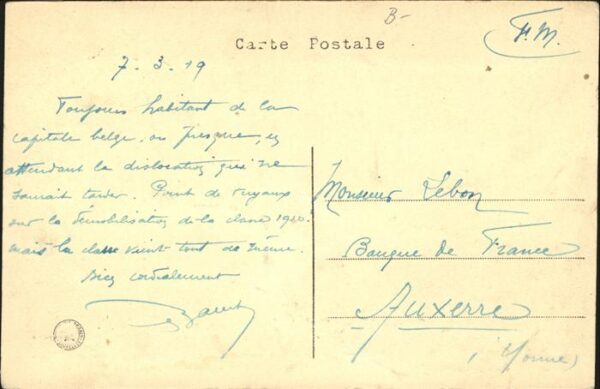 B-
F.M.
Carte Postale
7-3-19
Toujours habitant de la
capitale belge, ou presque, en
attendant la dislocation qui ne
saurait tarder. Point de tuyaux
sur la démobilisation de la classe 1910.
mais la classe vient tout de même.
Bien cordialement
Monsieur Lebon
Banque de France
Auxerre
(Yonne)